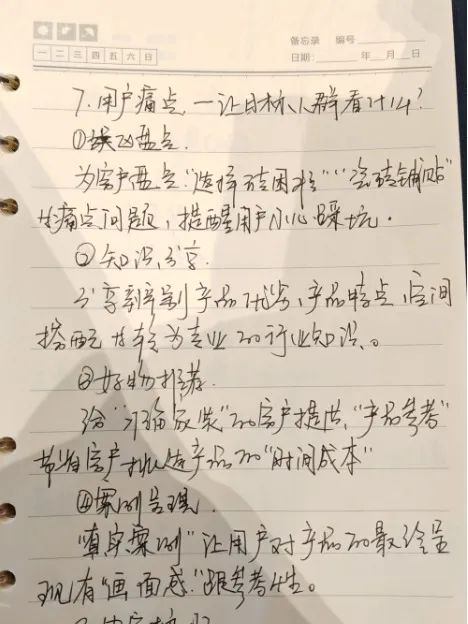 备忘录 编号
一 二 三 四 五 六 日
日期: 年 月 日
7.用户痛点,一让目标人群看什么?
①误区盘点.
为客户盘点“选择砖困难”“瓷砖铺贴”
等痛点问题,提醒用户小心踩坑.
②知识分享.
分享辨别产品优劣,产品特点,空间
搭配等较为专业的行业知识。
③好物推荐.
给“准备改装”的客户提供“产品参考”
节省客户挑选产品的“时间成本”
④案例呈现.
“真实案例”让用户对产品的最终呈
现有“画面感”跟参考性。